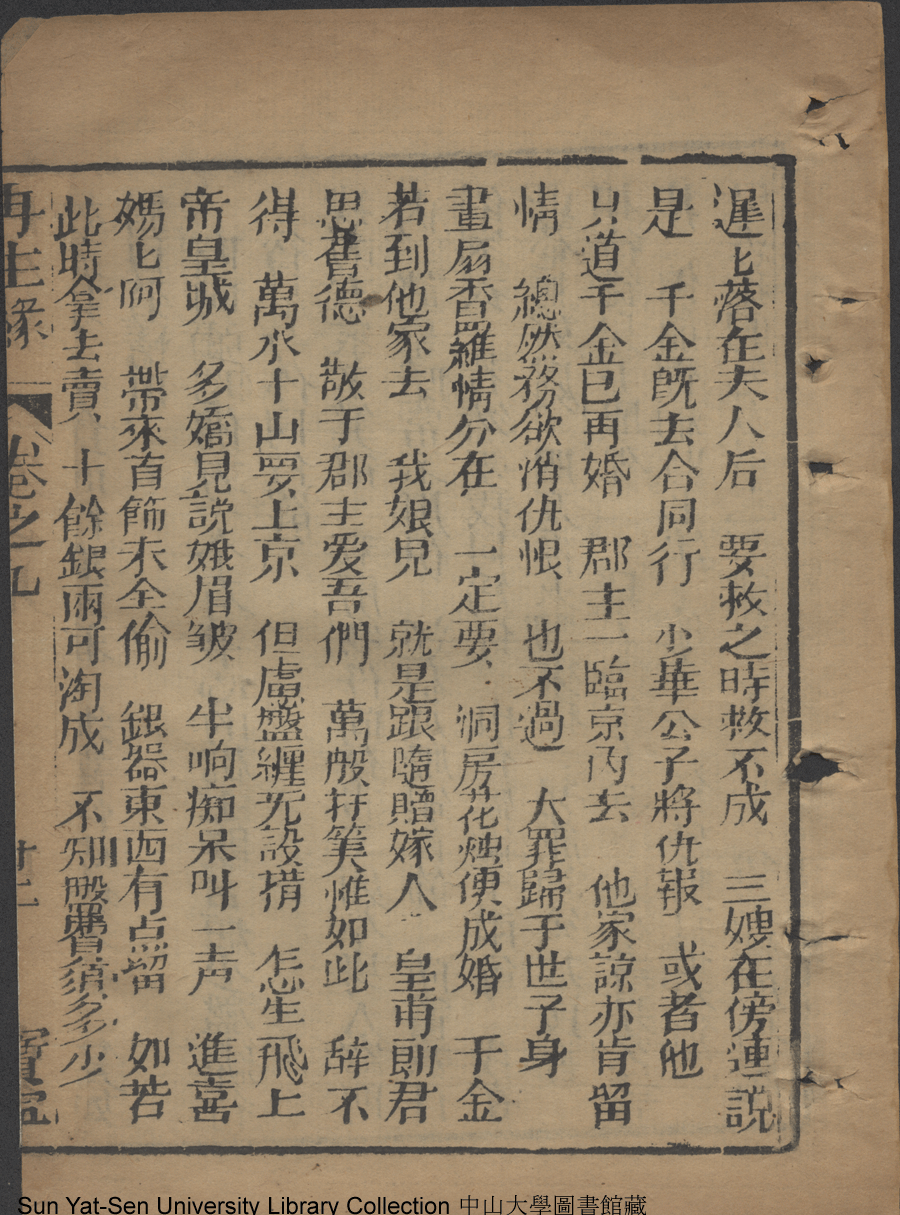 遲〻落在夫人后　要救之時救不成　三嫂在傍連說
是　千金既去合同行　少華公子將仇報　或者他
只道千金已再婚　郡主一臨京內去　他家諒亦肯留
情　總然務欲悄仇恨　也不過　大罪歸于世子身
畫扇香羅維情分在　一定要　洞房花燭便成婚　千金
若到他家去　我娘兒　就是跟隨贈嫁人　皇甫郎君
思舊德　散于郡主爱吾們　萬般打筭惟如此　辞不
得　萬水千山要上京　但慮盤纏无設措　怎生飛上
帝皇城　多嬌見說娥眉皱　半响痴呆叫一声　進喜
媽〻阿　帶來首餙未全偷　銀器東西有点留　如若
此時拿去賣　十餘銀兩可淘成　不知盤費須多少
再生緣　卷之九　廿二　寳寧
Sun Yat-Sen University Library Collection 中山大學圖書館藏